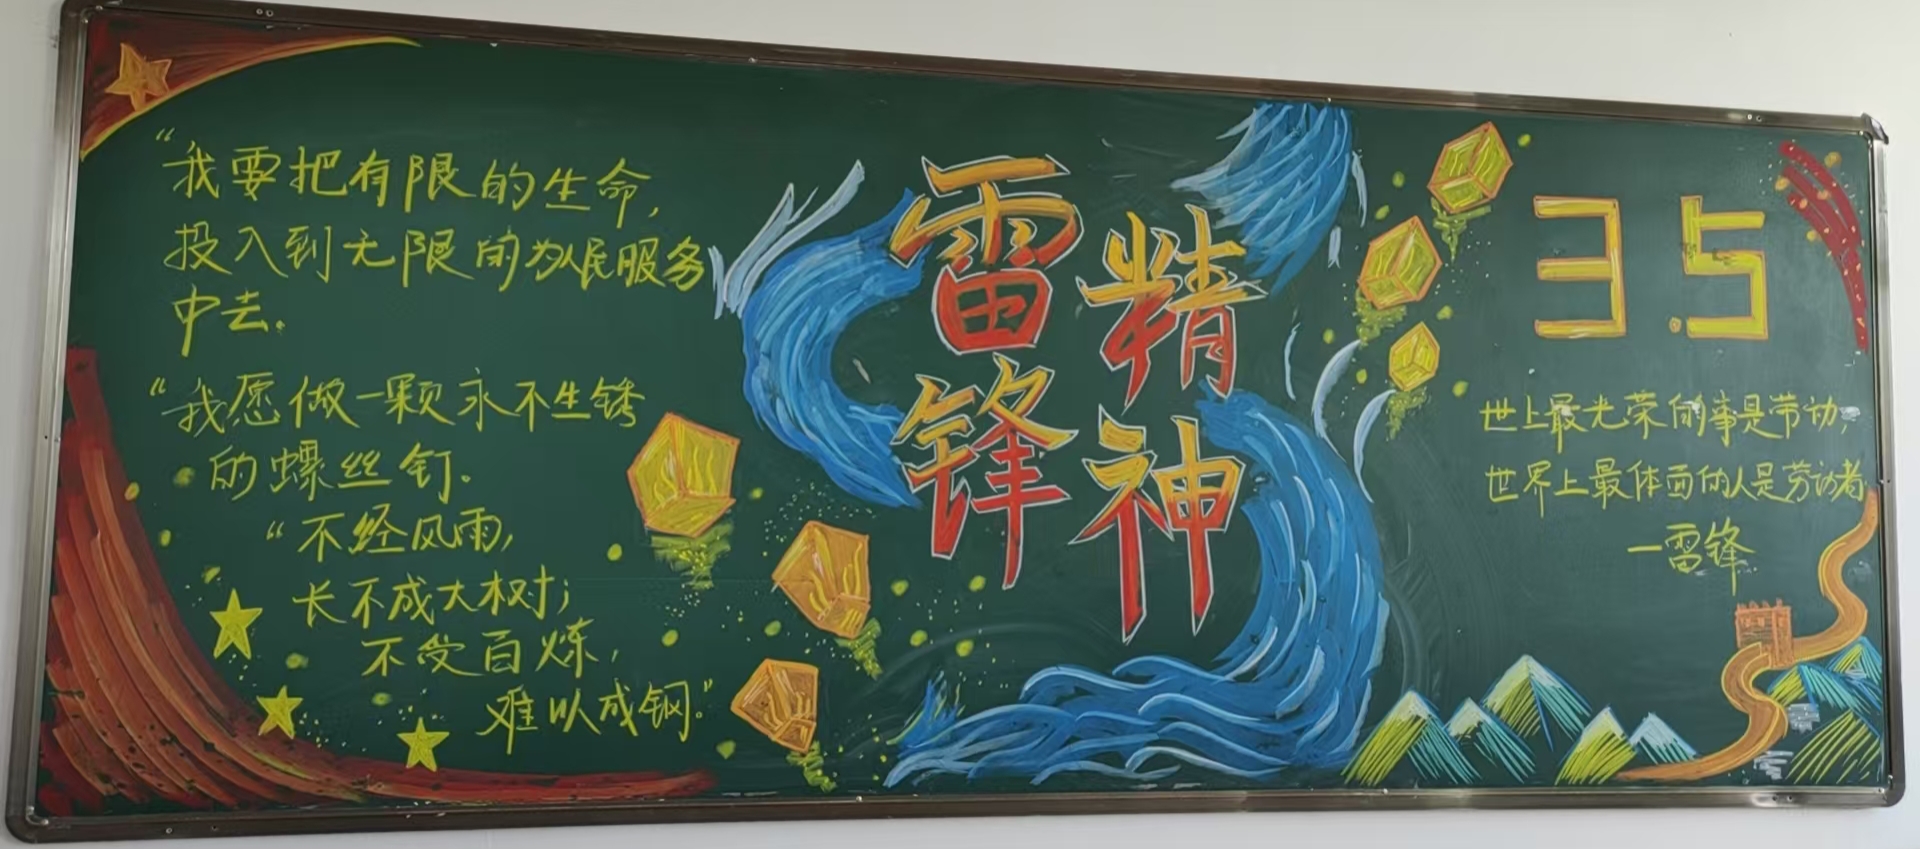 “我要把有限的生命,
投入到无限的为人民服务
中去。
“我愿做一颗永不生锈
的螺丝钉。
“不经风雨,
长不成大树;
不受百炼,
难以成钢。”
雷锋
精神
3.5
世上最光荣的事是劳动,
世界上最体面的人是劳动者
—雷锋